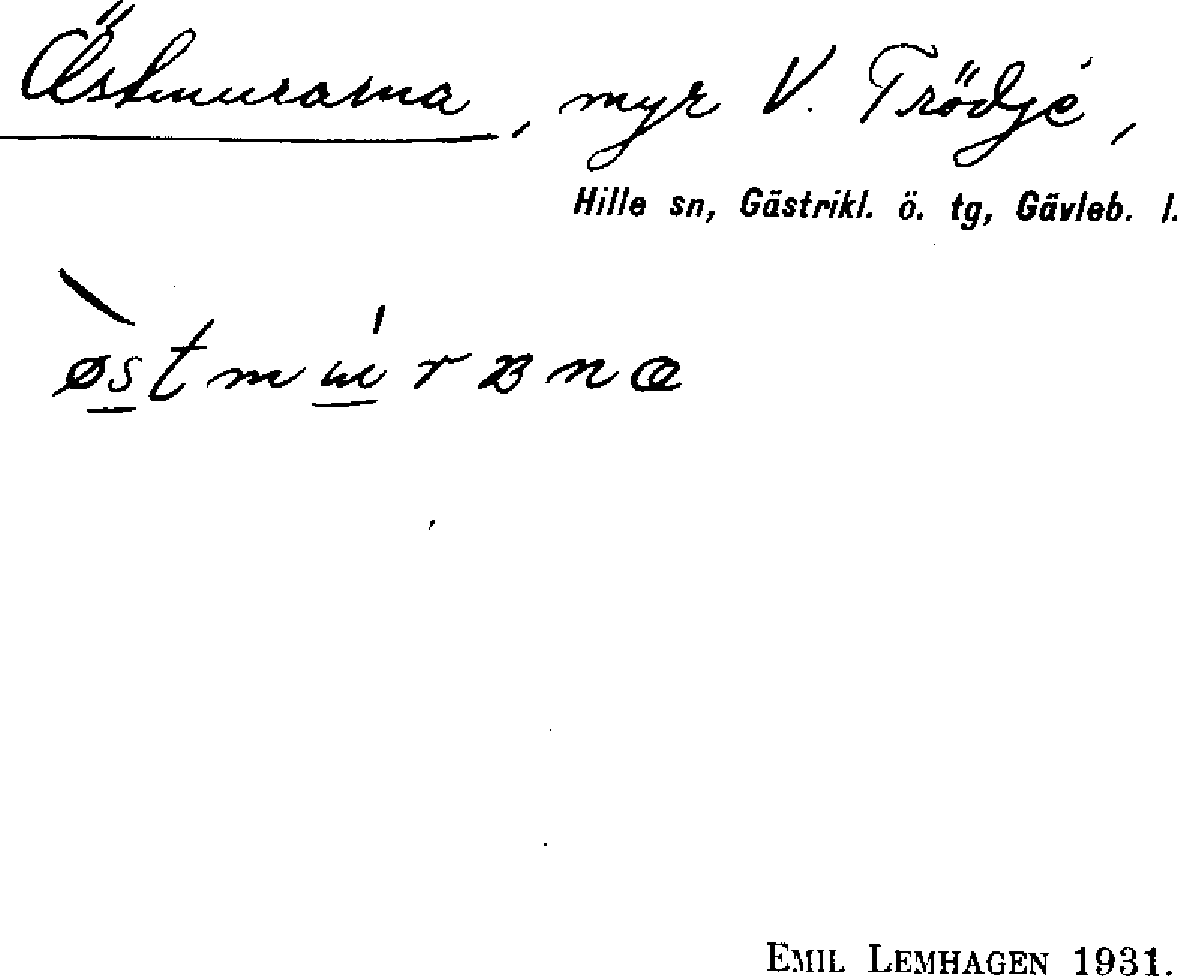 Östmurarna, myr V. Trödjé,
Hille sn, Gästrikl. ö. tg, Gävleb. l.
EMIL LEMHAGEN 1931.